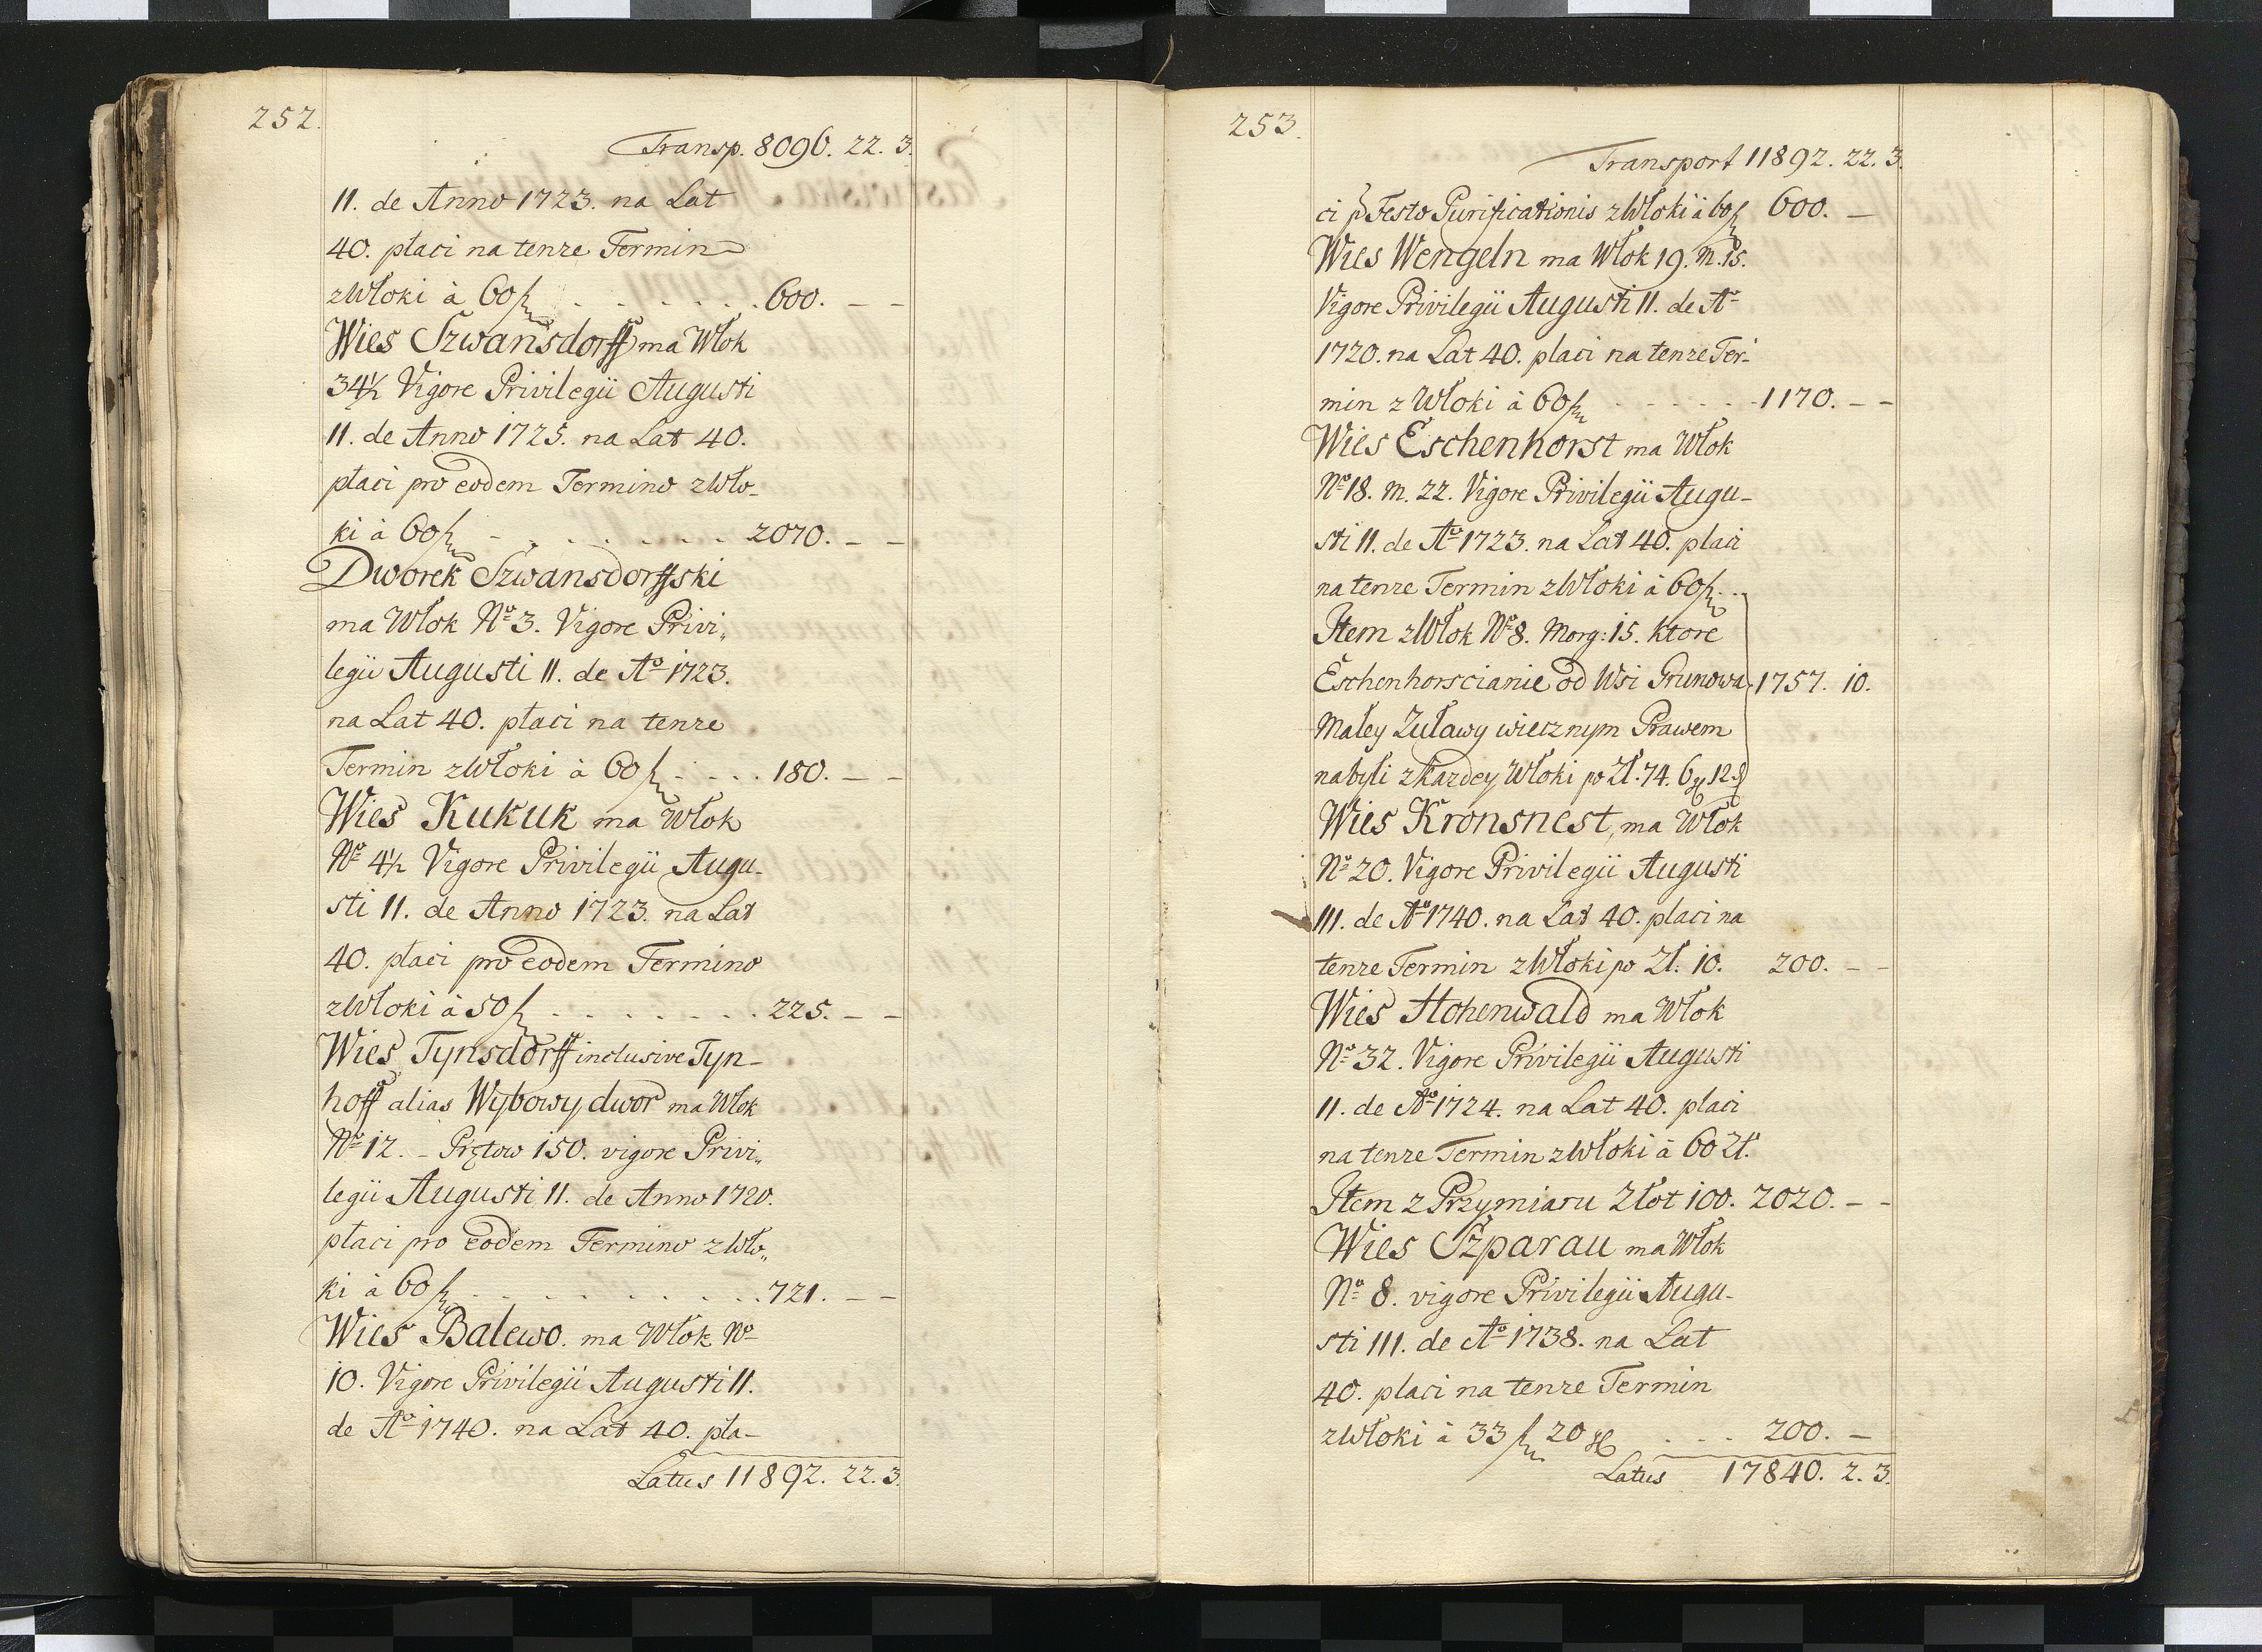 252.
Transp. 8096. 22. 3.
11. de Anno 1723. na Lat
40. płaci na tenze Termin
z Włoki à 60 f . . . . . . . 600. – –
Wies Szwansdorff ma Włok
34½ Vigore Privilegii Augusti
11. de Anno 1725. na Lat 40.
płaci pro eodem Termino z Wło-
ki à 60 f . . . . . . . 2070. – –
Dworek Szwansdorffski
ma Włok No 3. Vigore Privi„
legii Augusti 11. de Ao 1723.
na Lat 40. płaci na tenze
Termin z Włoki à 60 f . . . . 180. – –
Wies Kukuk ma Włok
No 4½ Vigore Privilegii Augu-
sti 11. de Anno 1723. na Lat
40. płaci pro eodem Termino
z Włoki à 50 f . . . . . . . . 225. – –
Wies Tynsdorff inclusive Tyn-
hoff alias Wybowy dwor ma Włok
No 12. – Prętow 150. vigore Privi„
legii Augusti 11. de Anno 1720.
płaci pro eodem Termino z Wło„
ki à 60 f . . . . . . . . . . 721. – –
Wies Balewo. ma Włok No
10. Vigore Privilegii Augusti 11.
de Ao 1740. na Lat 40. pła-
Latus 11892. 22. 3.
253.
Transport 11892. 22. 3.
ci p Festo Purificationis z Włoki à 60 f 600. –
Wies Wengeln ma Włok 19. m. 15.
Vigore Privilegii Augusti 11. de Ao
1720. na Lat 40. płaci na tenze Ter-
min z Włoki à 60 f . . . . . . 1170. – –
Wies Eschenhorst ma Włok
No 18. m. 22. Vigore Privilegii Augu-
sti 11. de Ao 1723. na Lat 40. płaci
na tenze Termin z Włoki à 60 f . . .
Item z Włok No 8. Morg: 15. Ktore
Eschenhorscianie od Wsi Grunowa 1757. 10.
Małey Zuławy wiecznym Prawem
nabyli z kazdey Włoki po Zł. 74. 6 12
Wies Kronsnest, ma Włok
No 20. Vigore Privilegii Augusti
111. de Ao 1740. na Lat 40. płaci na
tenze Termin z Włoki po Zł. 10. 200. – –
Wies Hohenwald ma Włok
No 32. Vigore Privilegii Augusti
11. de Ao 1724. na Lat 40. płaci
na tenze Termin z Włoki à 60 Zł.
Item z Przymiaru Złot 100. 2020. – –
Wies Szparau ma Włok
No 8. vigore Privilegii Augu-
sti 111. de Ao 1738. na Lat
40. płaci na tenze Termin
z Włoki à 33 f 20 . . . 200. –
Latus 17840. 2. 3.